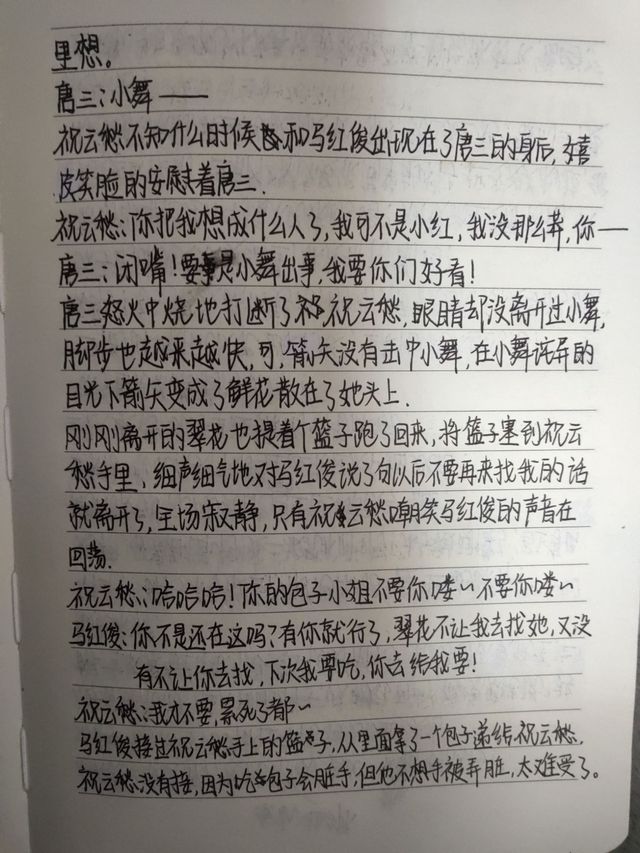 里想。
唐三:小舞——
祝云愁不知什么时候和马红俊出现在了唐三的身后,嬉
皮笑脸的安慰着唐三.
祝云愁:你把我想成什么人了,我可不是小红,我没那么莽,你——
唐三:闭嘴!要是小舞出事,我要你们好看!
唐三怒火中烧地打断了祝云愁,眼睛却没离开过小舞,
脚步也越来越快,可,箭矢没有击中小舞,在小舞诧异的
目光下箭矢变成了鲜花散在了她头上.
刚刚离开的翠花也提着个篮子跑了回来,将篮子塞到祝云
愁手里、细声细气地对马红俊说了句以后不要再来找我的话
就离开了,全场寂静,只有祝云愁嘲笑马红俊的声音在
回荡.
祝云愁:哈哈哈!你的包子小姐不要你喽~不要你喽~
马红俊:你不是还在这吗?有你就行了,翠花不让我去找她,又没
有不让你去找,下次我要吃,你去给我要!
祝云愁:我才不要,累死了都~
马红俊接过祝云愁手上的篮子,从里面拿了一个包子递给祝云愁.
祝云愁没有接,因为吃包子会脏手,但他不想手被弄脏,太难受了。